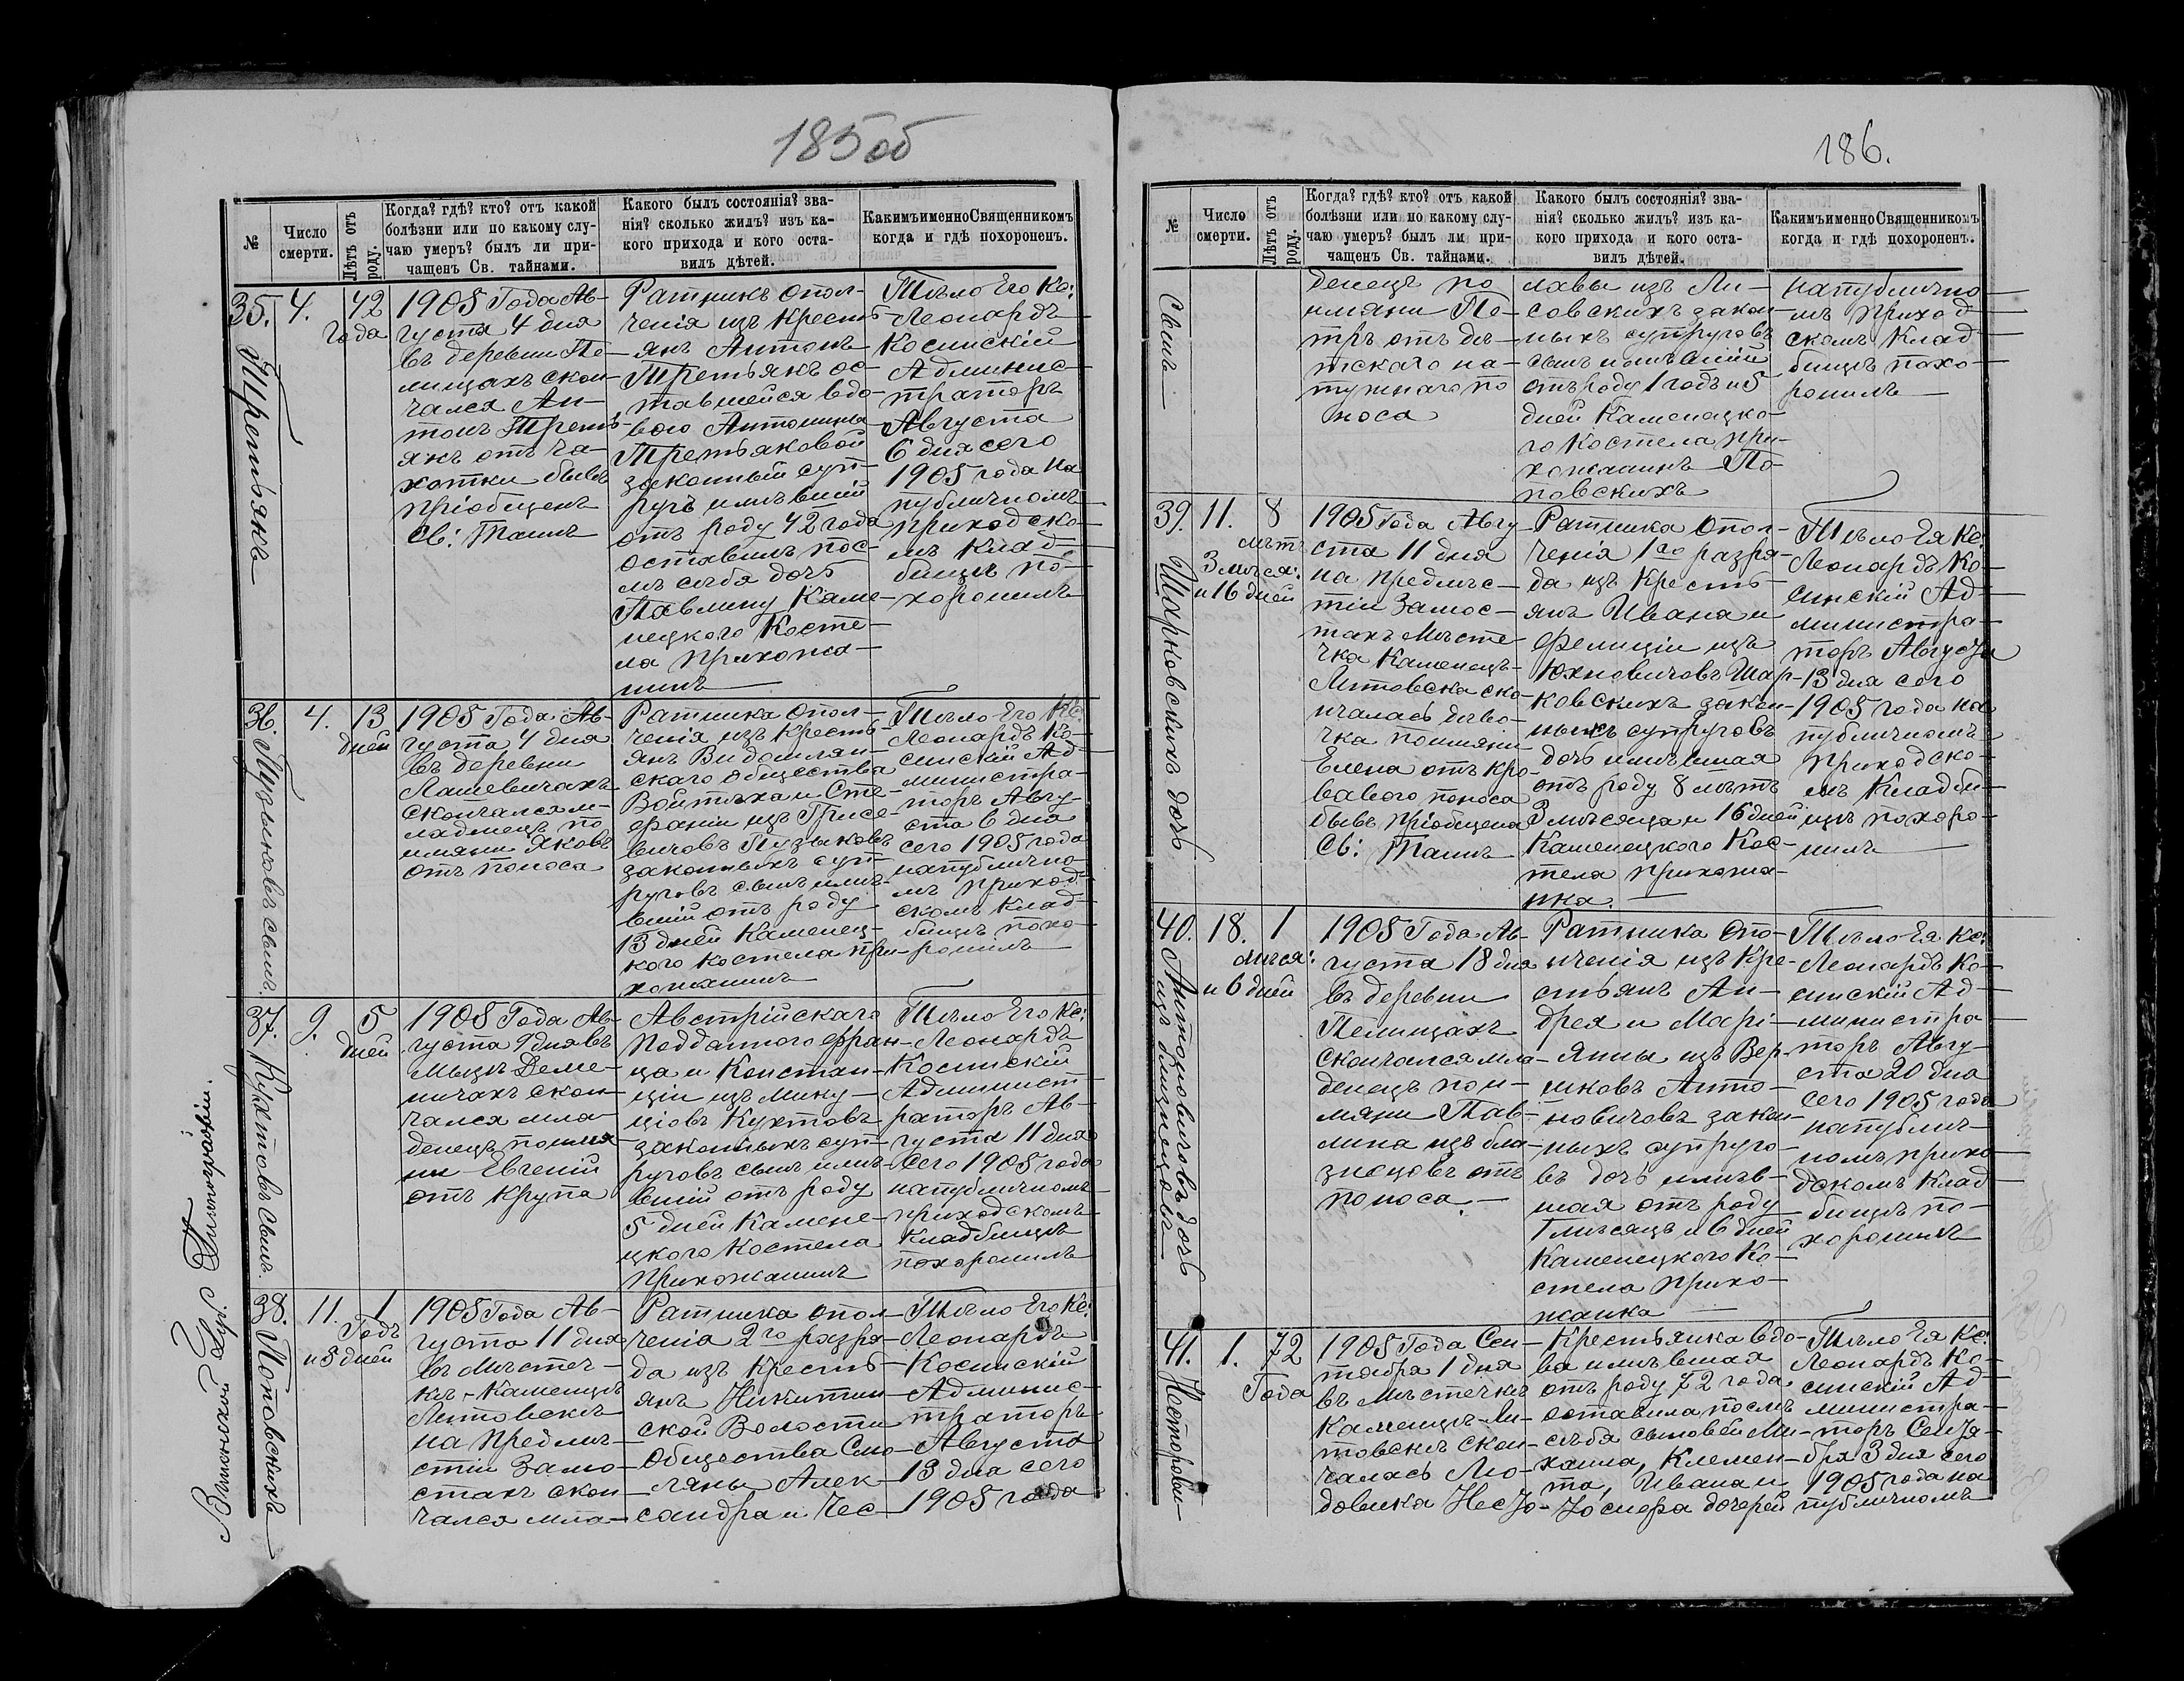 185 об
№
Число смерти.
Лѣтъ отъ роду.
Когда? гдѣ? кто? отъ какой
болѣзни или по какому слу-
чаю умеръ? былъ ли при-
чащенъ Св. тайнами.
Какого былъ состоянія? зва-
нія? сколько жилъ? изъ ка-
кого прихода и кого оста-
вилъ дѣтей.
Какимъ именно Священникомъ
когда и гдѣ похороненъ.
35.
Третьякъ
4.
42
года
1905 Года Ав-
густа 4 дня
въ деревни Пе-
лищахъ скон-
чался Ан-
тонъ Треть-
якъ отъ ча-
хотки бывъ
пріобщенъ
Св: Таинъ
Ратникъ Опол-
ченія изъ Кресть-
янъ Антонъ
Третьякъ ос-
тавшейся вдо-
вою Антонины
Третьяковой
законный суп-
ругъ имѣвшій
отъ роду 42 года
оставилъ пос-
лѣ себя дочь
Павлину Каме-
нецкого Косте-
ла прихожа-
нинъ
Тѣло Его Кс:
Леонардъ
Косинскій
Админис-
траторъ
Августа
6 дня сего
1905 года на
публичномъ
приходско-
мъ Клад-
бищѣ по-
хоронилъ
36.
Пузыковъ сынъ.
4.
13
дней
1905 Года Ав-
густа 4 дня
въ деревни
Лашевичахъ
скончался м-
ладенецъ по
имяни Яковъ
отъ поноса
Ратника Опол-
ченія изъ Кресть-
янъ Видомлян-
скаго общества
Войтѣха и Сте-
фаніи изъ Грисе-
вичовъ Пузыковъ
законныхъ суп-
руговъ сынъ имѣ-
вшій отъ роду
13 дней Каменец-
кого костела при-
хожанинъ
Тѣло Его Кс:
Леонардъ Ко-
синскій Ад-
министра-
торъ Авгу-
ста 6 дня
сего 1905 года
на публично-
мъ приход-
скомъ Клад-
бищѣ похо-
ронилъ
37.
Кухтовъ сынъ.
9.
5
дней
1905 Года Ав-
густа 9 дня въ
Мызѣ Деме-
ничахъ скон-
чался мла-
денецъ по имя-
ни Евгеній
отъ крупа
Австрійскаго
Подданного Фран-
ца и Констан-
ціи изъ Мику-
ціовъ Кухтовъ
законныхъ суп-
руговъ сынъ имѣ-
вшій отъ роду
5 дней Камене-
цкого Костела
прихожанинъ
Тѣло Его Кс:
Леонардъ
Косинскій
Админист-
раторъ Ав-
густа 11 дня
сего 1905 года
на публичномъ
приходскомъ
Кладбищѣ
похоронилъ
38.
Поповскихъ
11.
1
Годъ
и 5 дней
1905 Года Ав-
густа 11 дня
въ Мѣстеч-
кѣ Каменцѣ
Литовскѣ
на предмѣ-
стіи Замо-
стахъ скон-
чался мла-
Ратника опол-
ченія 2го разря-
да изъ Кресть-
янъ Никитин-
ской Волости
Общества Смо-
ляны Алек-
сандра и Чес-
Тѣло Его Кс:
Леонардъ
Косинскій
Админис-
траторъ
Августа
13 дня сего
1905 года
186.
№
Число смерти.
Лѣтъ отъ роду.
Когда? гдѣ? кто? отъ какой
болѣзни или по какому слу-
чаю умеръ? былъ ли при-
чащенъ Св. тайнами.
Какого былъ состоянія? зва-
нія? сколько жилъ? изъ ка-
кого прихода и кого оста-
вилъ дѣтей.
Какимъ именно Священникомъ
когда и гдѣ похороненъ.
Сынъ
денецъ по
имяни Пе-
тръ отъ дѣ-
тскаго на-
тужнаго по
носа
лавы изъ Ли-
совскихъ закон-
ныхъ супруговъ
сынъ имѣвшій
отъ роду 1 годъ и 5
дней Каменецко-
го Костела при-
хожанинъ По-
повскихъ
на публично-
мъ приход-
скомъ Клад-
бищѣ похо-
ронилъ
39.
Шарковскихъ дочь
11.
8
лѣтъ
3 мѣся:
и 16 дней
1905 Года Авгу-
ста 11 дня
на предмѣс-
тіи Замос-
тахъ Мѣсте-
чка Каменецъ-
Литовска ско-
нчалась дѣво-
чка по имяни
Елена отъ кро-
вавого поноса
бывъ пріобщена
Св: Таинъ
Ратника Опол-
ченія 1го разря-
да изъ Кресть-
янъ Ивана и
Фелиціи изъ
Юхновичовъ Шар-
ковскихъ закон-
ныхъ супруговъ
дочь имѣвшая
отъ роду 8 лѣтъ
3 мѣсяца и 16 дней
Каменецкого Кос-
тела прихожа-
нка.
Тѣло Ея Кс:
Леонардъ Ко-
синскій Ад-
министра-
торъ Августа
13 дня сего
1905 года на
публичномъ
приходско-
мъ Кладби-
щѣ похоро-
нилъ
40.
Антоновичовъ дочь
изъ близнецовъ
18.
1
мѣся:
и 6 дней
1905 Года Ав-
густа 18 дня
въ деревни
Пелищахъ
скончался мла-
денецъ по и-
мяни Пав-
лина изъ бли-
знецовъ отъ
поноса.
Ратника Опо-
лченія изъ Кре-
стьянъ Ан-
дрея и Марі-
янны изъ Вер-
нковъ Анто-
новичовъ закон-
ныхъ супруго-
въ дочь имѣв-
шая отъ роду
1 мѣсяцъ и 6 дней
Каменецкого Ко-
стела прихо-
жанка
Тѣло Ея Кс:
Леонардъ Ко-
синскій Ад-
министра-
торъ Авгу-
ста 20 дня
сего 1905 года
на публич-
номъ прихо-
дскомъ Клад-
бищѣ по-
хоронилъ
41.
1.
72
Года
1905 Года Сен-
тября 1 дня
въ Мѣстечкѣ
Каменцѣ-Ли-
товскѣ скон-
чалась Лю-
довика Несто-
Крестьянка вдо-
ва имѣвшая
отъ роду 72 года
оставила послѣ
себя сыновей Ми-
хаила, Клемен-
та, Ивана и
Іосифа дочерей
Тѣло Ея Кс:
Леонардъ Ко-
синскій Ад-
министра-
торъ Сентя-
бря 3 дня сего
1905 года на
публичномъ